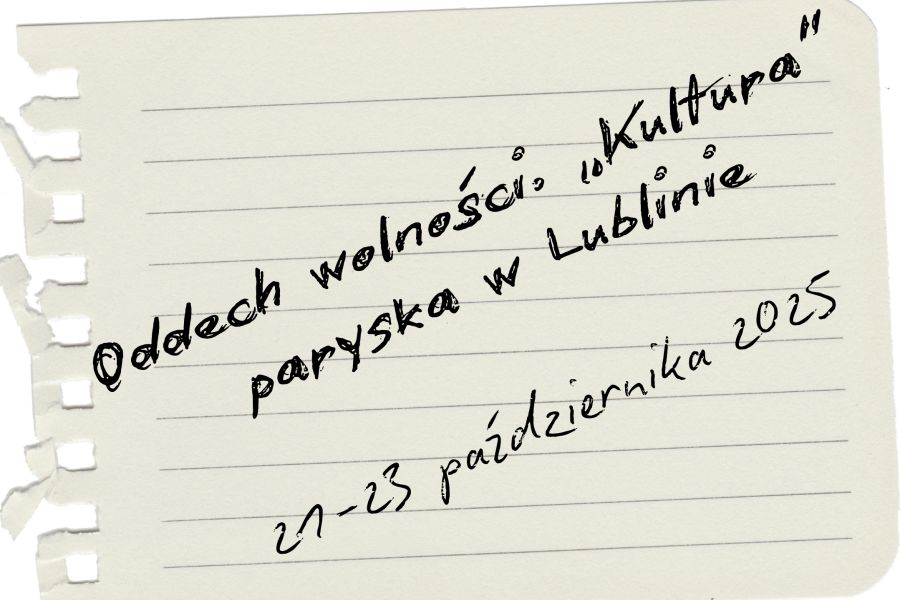 Oddech wolności. „Kultura"
paryska w Lublinie
21-23 października 2025